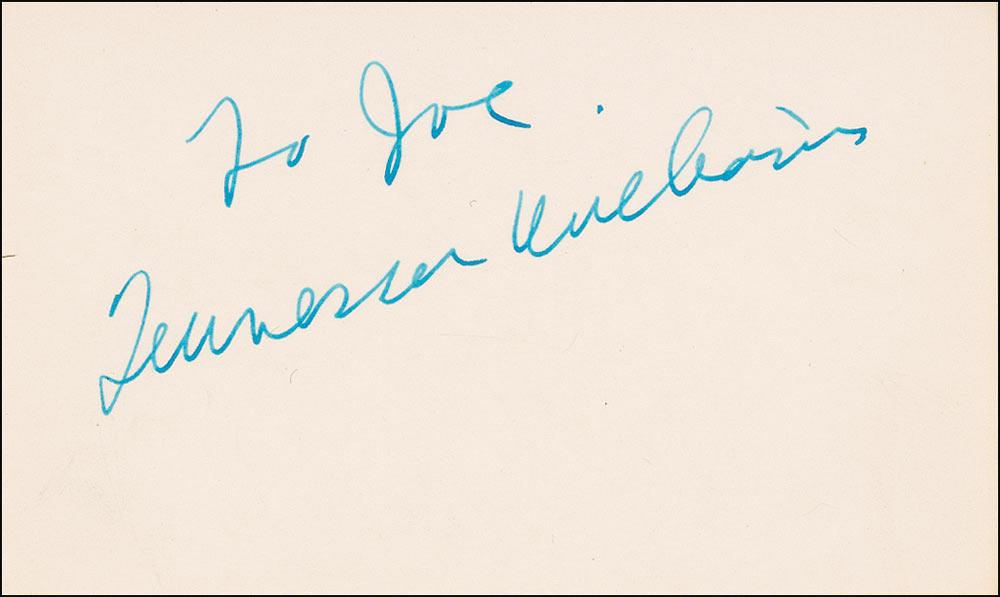 To Joe
Tennessee Williams